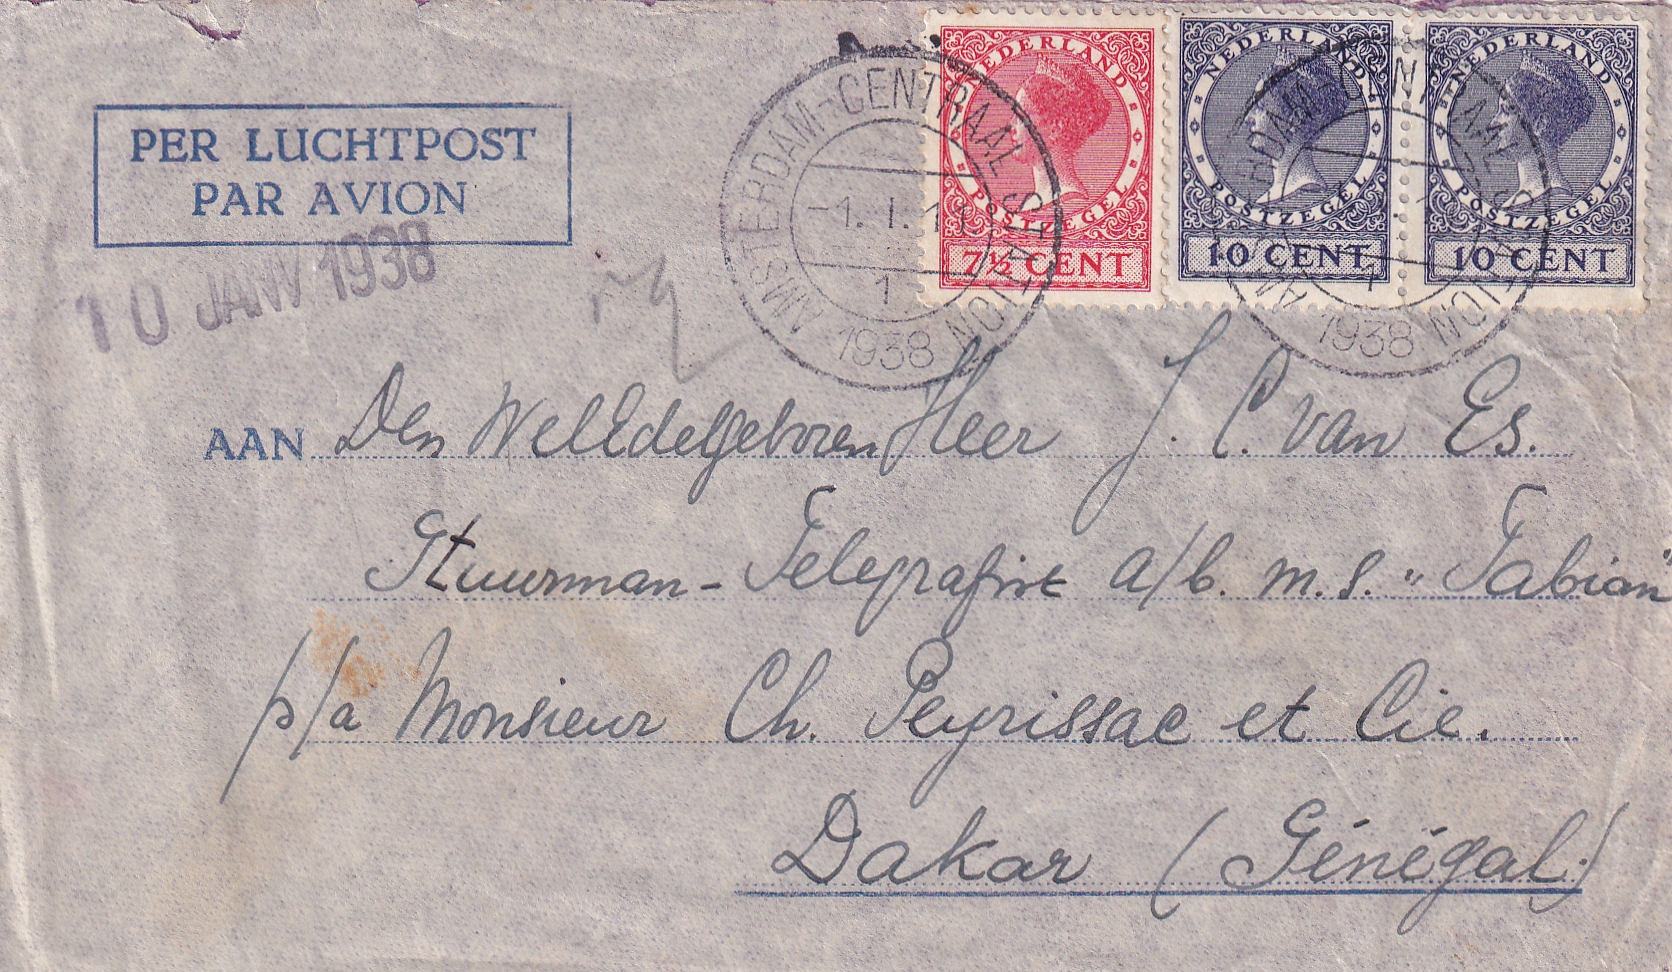 PER LUCHTPOST
PAR AVION
10 JANV 1938
NEDERLAND
POSTZEGEL
7½ CENT
NEDERLAND
POSTZEGEL
10 CENT
NEDERLAND
POSTZEGEL
10 CENT
AMSTERDAM-CENTRAAL STATION
1
1938
AMSTERDAM-CENTRAAL STATION
1
1938
AAN Den WelEdelGeboren Heer J. C. van Es.
Stuurman - Telegrafist a/b. m.s. "Fabian"
p/a Monsieur Ch. Peyrissac et Cie.
Dakar (Sénégal)